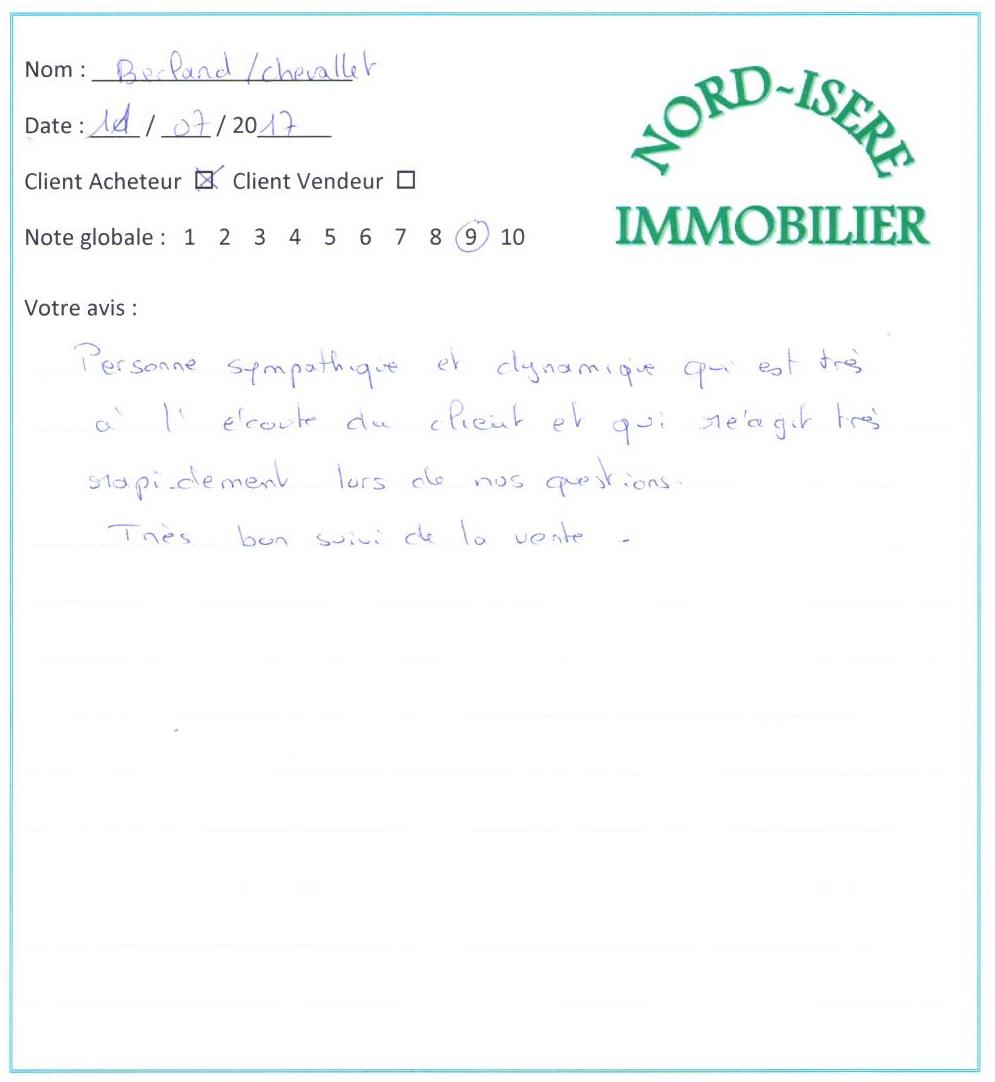 Nom : Berland / chevallet
NORD-ISERE
Date : / 07 / 2017
Client Acheteur ☒ Client Vendeur ☐
IMMOBILIER
Note globale : 1 2 3 4 5 6 7 8 9 10
Votre avis :
Personne sympathique et dynamique qui est très
à l'écoute du client et qui réagit très
rapidement lors de nos questions.
Très bon suivi de la vente -